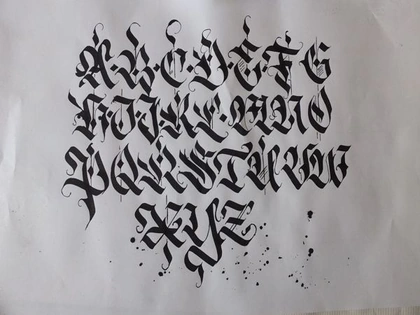 A·B·C·D·E·F·G
H·I·J·K·L·M·N·O
P·Q·R·S·T·U·V·W
X·Y·Z